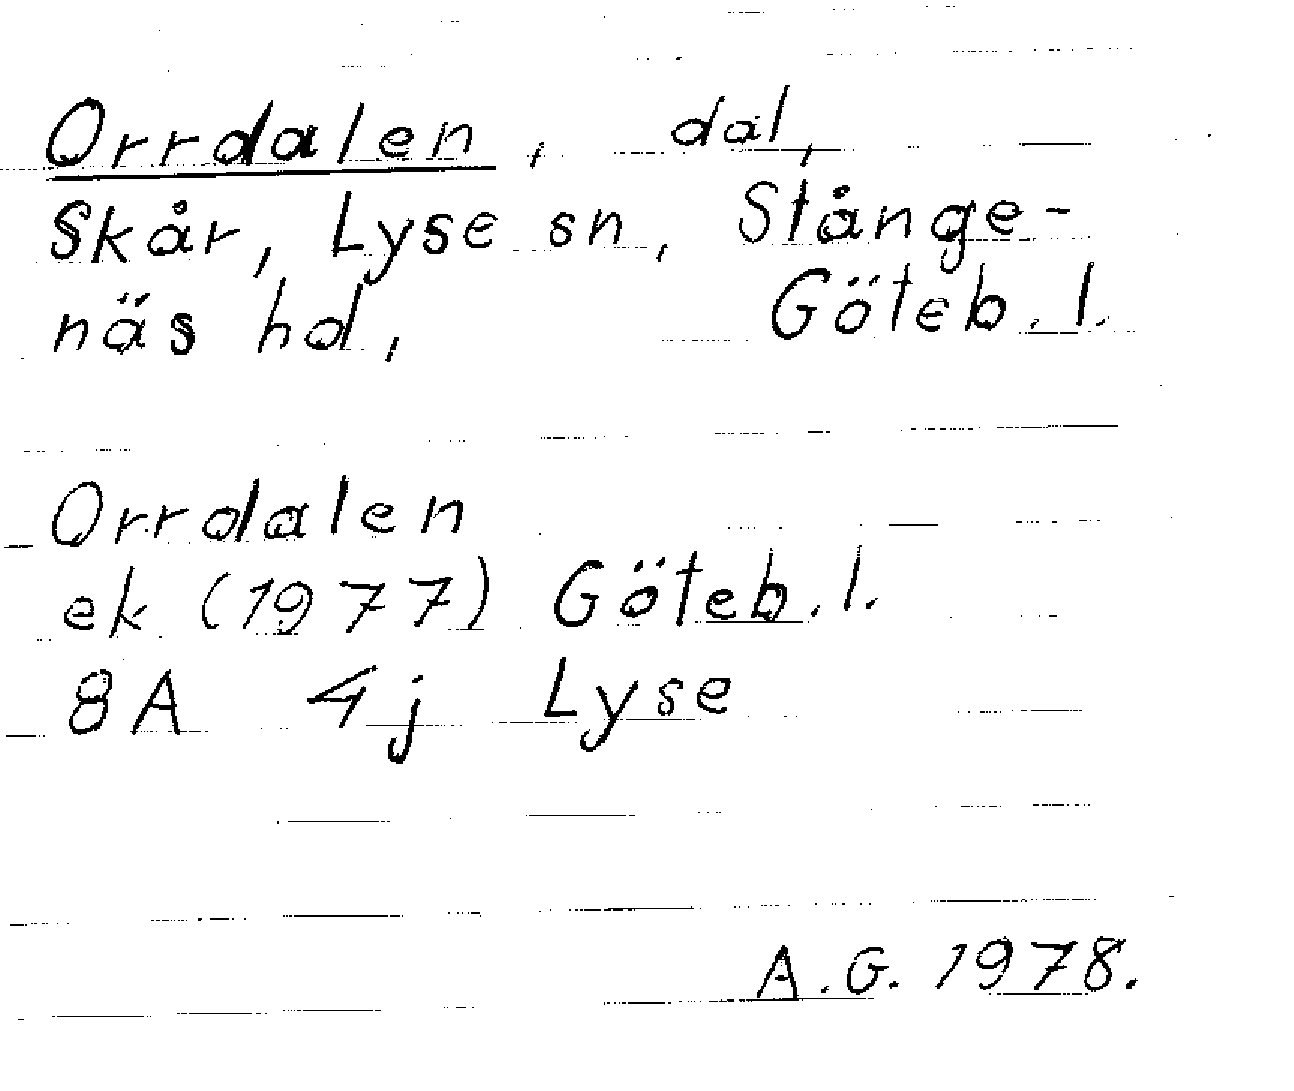 Orrdalen, dal,
Skår, Lyse sn, Stånge-
näs hd, Göteb. l.
Orrdalen
ek (1977) Göteb. l.
8A 4j Lyse
A. G. 1978.